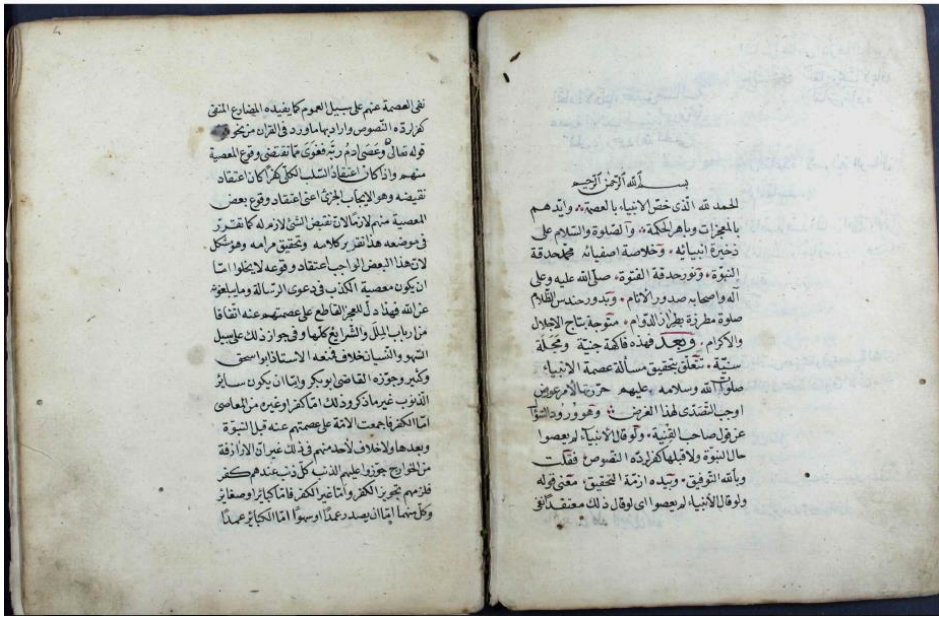 بسم الله الرحمن الرحيم
الحمد لله الذى خص الانبياء بالعصمة وايدهم
بالمعجزات وباهر الحكمة والصلوة والسلام على
ذخيرة انبيائه وخلاصة اصفيائه محمد حدقة
النبوة ونور حدقة الفتوة صلى الله عليه وعلى
آله واصحابه صدور الانام وبدور حندس الظلام
صلوة مطرزة بطراز الدوام متوجة بتاج الاجلال
والاكرام وبعد فهذه فاكهة جنية ومجلة
سنية تتعلق بتحقيق مسألة عصمة الانبياء
صلوات الله وسلامه عليهم حررتها لأمر عرض
اوجب التصدى لهذا الغرض وهو ورود السؤال
عن قول صاحب القنية ولو قال الانبياء لم يعصوا
حال النبوة ولا قبلها كفر لرده النصوص فقلت
وبالله التوفيق وبيده ازمة التحقيق معنى قوله
ولو قال الأنبياء لم يعصوا اى لو قال ذلك معتقدا نفى
نفى العصمة عنهم على سبيل العموم كما يفيده المضارع المنفى
كفر لرده النصوص واراد بها ما ورد فى القران من نحو
قوله تعالى وعصى ادم ربه فغوى مما تقتضى وقوع المعصية
منهم واذا كان اعتقاد السلب الكلى كفرا كان اعتقاد
نقيضه وهو الايجاب الجزئى اعنى اعتقاد وقوع بعض
المعصية منهم لازما لان نقيض الشئ لازم له كما تقرر
فى موضعه هذا تقرير كلامه وتحقيق مرامه وهو مشكل
لان هذا البعض الواجب اعتقاد وقوعه لا يخلوا اما
ان يكون معصية الكذب فى دعوى الرسالة وما يبلغونه
عن الله فهذا دل المعجز القاطع على عصمتهم عنه اتفاقا
من ارباب الملل والشرايع كلها وفى جواز ذلك على سبيل
السهو والنسيان خلاف فمنعه الاستاذ ابو اسحق
وكثير وجوزه القاضى ابو بكر واما ان يكون سائر
الذنوب غير ما ذكر وذلك اما كفر او غيره من المعاصى
اما الكفر فاجمعت الامة على عصمتهم عنه قبل النبوة
وبعدها ولا خلاف لأحد منهم فى ذلك غير ان الازارقة
من الخوارج جوزوا عليهم الذنب وكل ذنب عندهم كفر
فلزمهم تجويز الكفر واما غير الكفر فاما كبائر او صغاير
وكل منهما اما ان يصدر عمدا او سهوا اما الكبائر عمدا